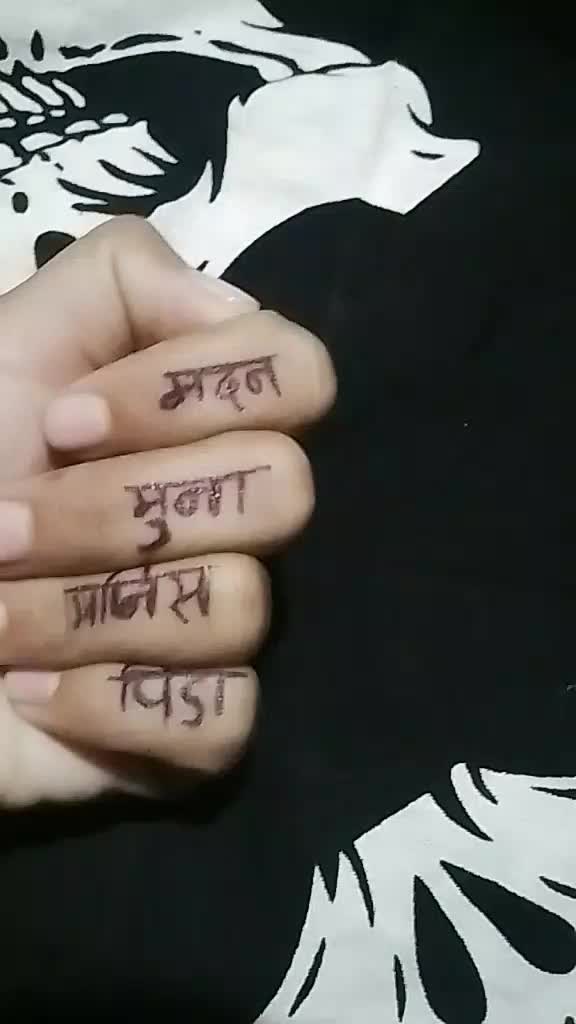 मदन
मुना
प्रिन्स
पिडा